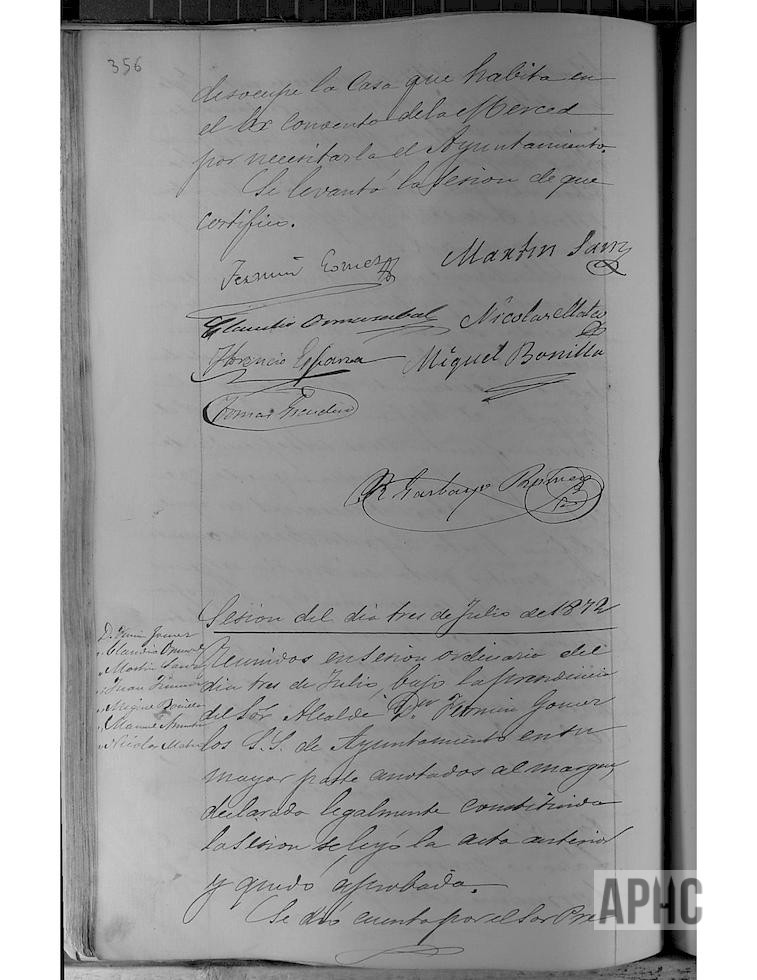 356
desocupe la Casa que habita en
el Ex convento de la Merced
por necesitarla el Ayuntamiento.
Se levantó la sesion de que
certifico.
Fermin Gomez
Martin Sainz
Claudio
Nicolas Mateo
Florencio España
Miguel Bonilla
Tomas
R Garbayo
Sesion del dia tres de Julio de 1872
D. Fermin Gomez
" Claudio
" Martin Sainz
" Juan
" Miguel Bonilla
" Manuel
" Nicolas Mateo
Reunidos en sesion ordinaria del
dia tres de Julio, bajo la presidencia
del Sor. Alcalde Dn. Fermin Gomez
los S.S. de Ayuntamiento en su
mayor parte anotados al margen,
declarada legalmente constituida
la sesion se leyó la acta anterior
y quedó aprobada.
Se dió cuenta por el Sor Pre-
APHC